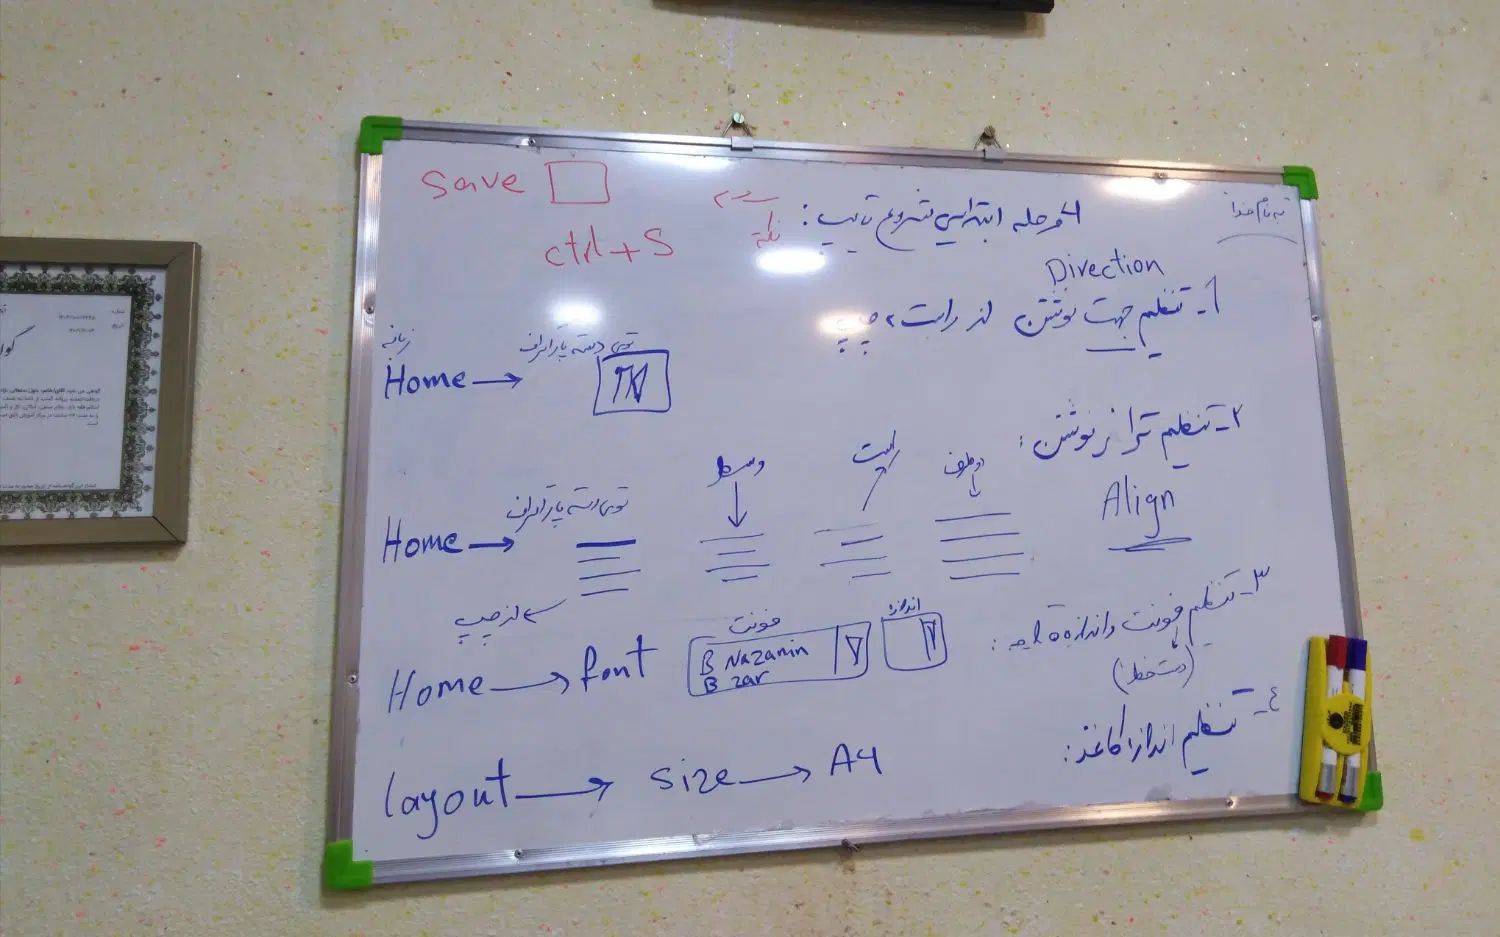 به نام خدا
۴ مرحله ابتدایی شروع تایپ:
نکته
save
ctrl + S
Direction
۱- تنظیم جهت نوشتن از راست به چپ
زبانه
توی دسته پاراگراف
Home →
۲- تنظیم تراز نوشتن:
Align
دوطرفه
راست
وسط
توی دسته پاراگراف
Home →
از چپ
۳- تنظیم فونت و اندازه
(دست خط)
اندازه
فونت
Home → font
B Nazanin
B zar
٤- تنظیم اندازه کاغذ:
layout → size → A4